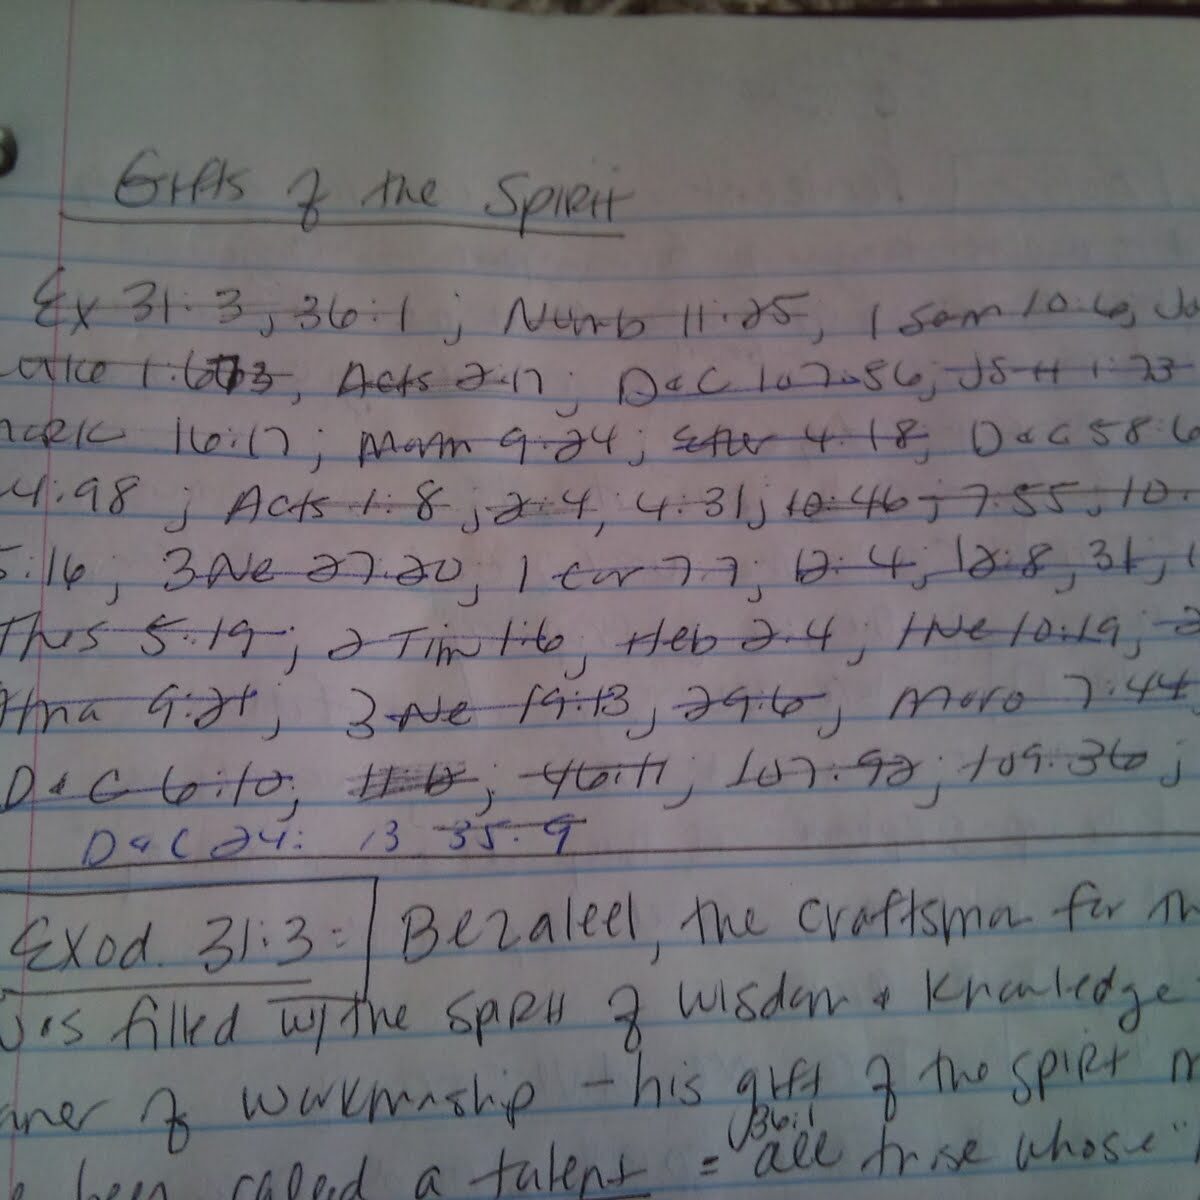 Gifts of the Spirit
Ex 31:3, 36:1; Numb 11:25, 1 Sam 10:6,
Acts 2:17; D&C 107:56; JS-H 1:73
16:17; Morm 9:24; Ether 4:18; D&C 58:6
4:98; Acts 1:8, 2:4, 4:31; 10:46; 7:55, 10:
5:16; 3 Ne 27:20; 1 Cor 7:7; 12:4, 12:8, 31,
Ths 5:19; 2 Tim 1:6, Heb 2:4; 1 Ne 10:19;
9:21; 3 Ne 19:13, 29:6, Moro 7:44
D&C 6:10, 46:11, 107:92; 109:36;
D&C 24: 13 35:9
Exod. 31:3: Bezaleel, the craftsman for
is filled w/ the Spirit of wisdom & knowledge
of workmanship - his gift of the spirt
36:1
been called a talent = "all those whose